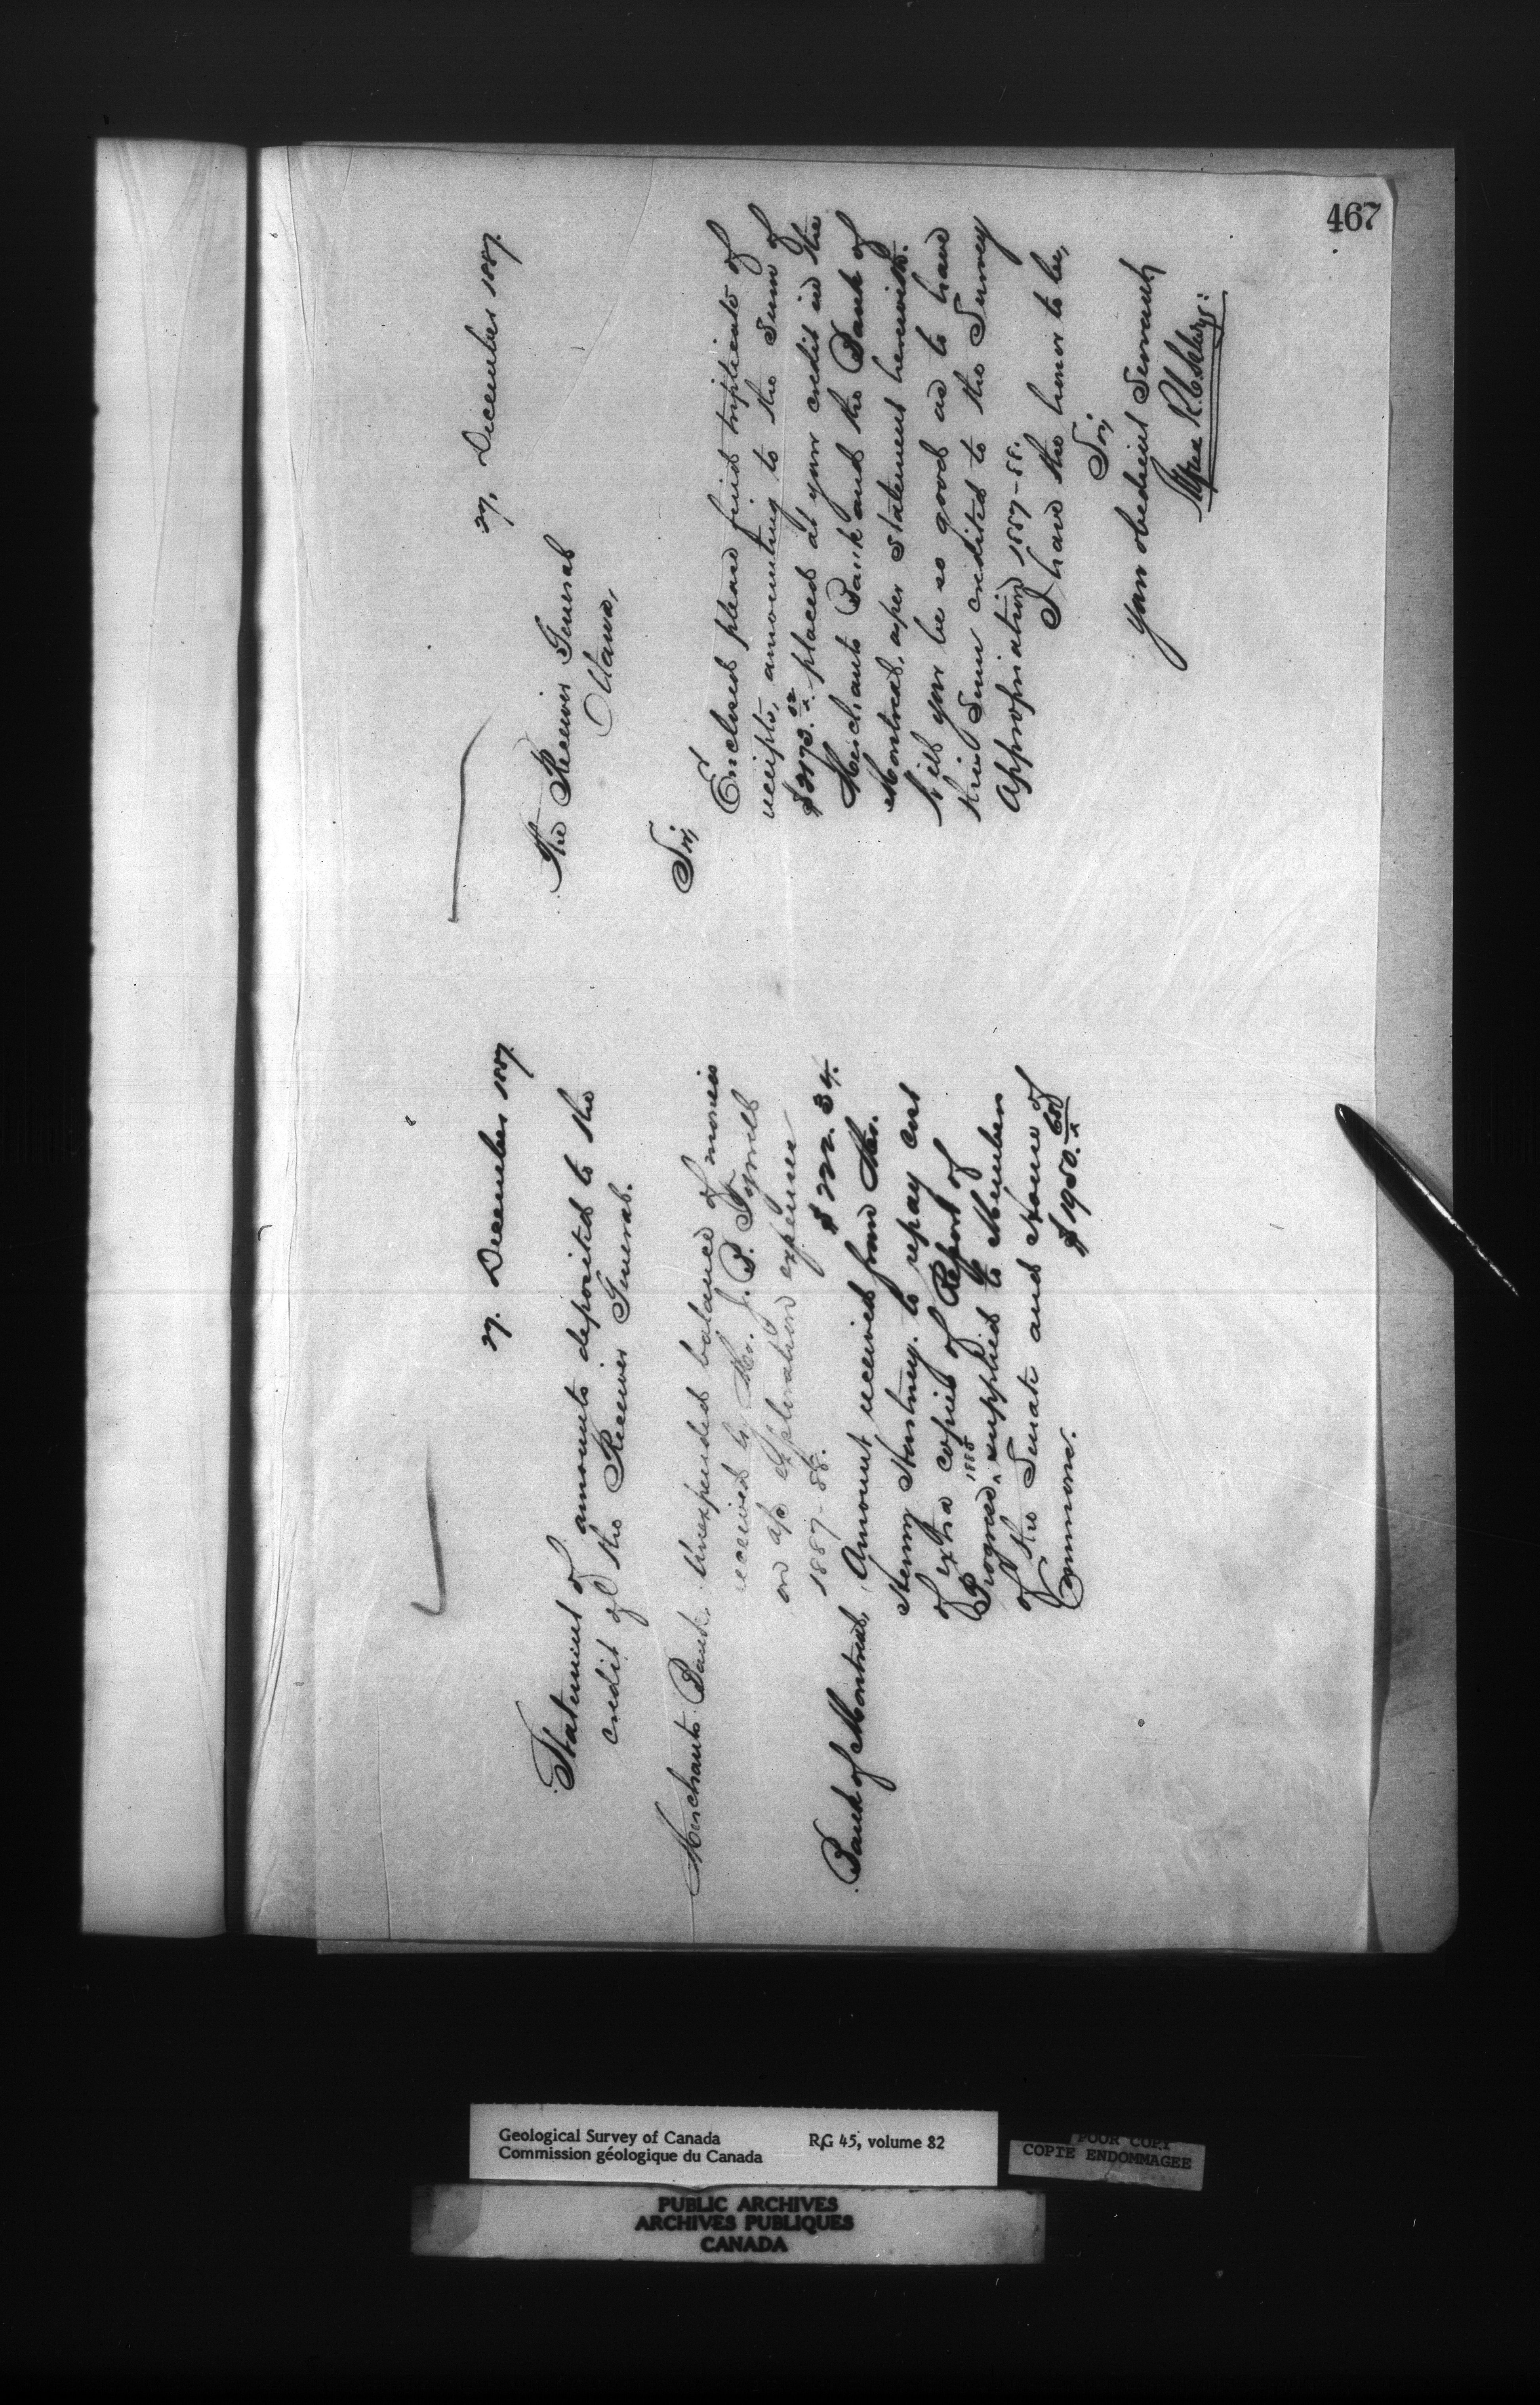 467
27. December 1887.
Statement of amounts deposited to the
credit of the Receiver General.
Merchants Bank. Unexpended balance of monies
received by Mr. J. B. Tyrrell
on a/c exploration expenses
1887-88. $222.34.
Bank of Montreal, Amount received from Mr.
Henry Hartney. to repay cost
of extra copies of Report of
Progress, 1885 supplied to Members
of the Senate and House of
Commons. $1950.68
27, December 1887.
The Receiver General
Ottawa,
Sir,
Enclosed please find triplicate of
receipts, amounting to the sum of
$2173.02 placed at your credit in the
Merchants Bank and the Bank of
Montreal, as per statement herewith.
Will you be so good as to have
this sum credited to the Survey
Appropriation 1887-88.
I have the honor to be,
Sir,
your obedient Servant,
Alfred R. C. Selwyn.
Geological Survey of Canada RG 45, volume 82
Commission géologique du Canada
POOR COPY
COPIE ENDOMMAGEE
PUBLIC ARCHIVES
ARCHIVES PUBLIQUES
CANADA